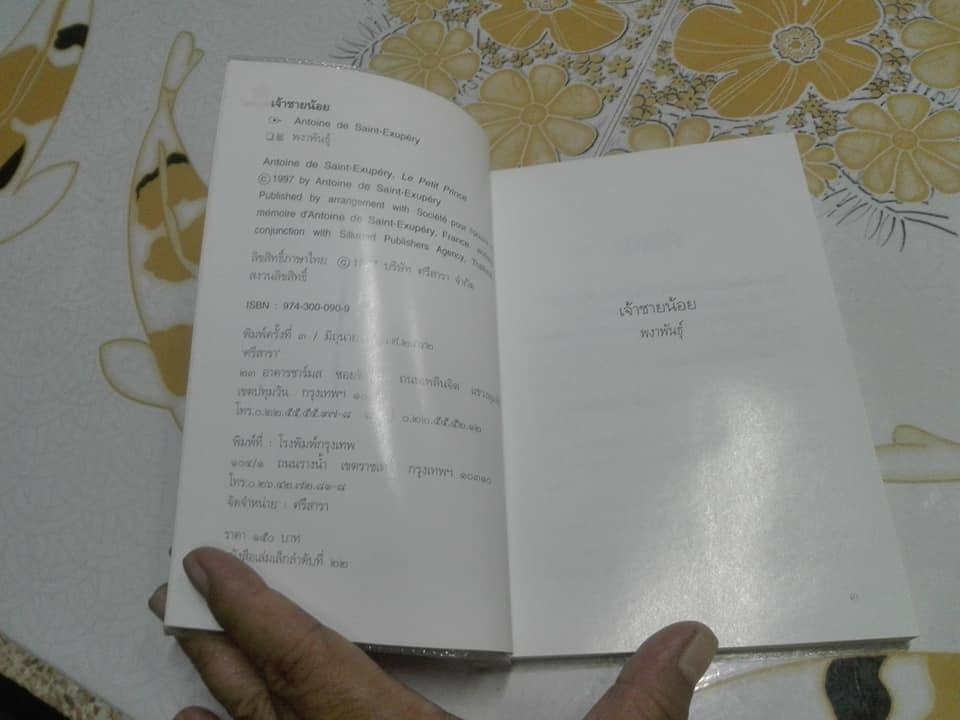 เจ้าชายน้อย
Antoine de Saint-Exupéry
พงาพันธุ์
Antoine de Saint-Exupéry, Le Petit Prince
©1997 by Antoine de Saint-Exupéry
Published by arrangement with Société pour
mémoire d'Antoine de Saint-Exupéry, France,
conjunction with Silkroad Publishers Agency,
ลิขสิทธิ์ภาษาไทย © บริษัท ศรีสารา จำกัด
สงวนลิขสิทธิ์
ISBN : 974-300-090-9
พิมพ์ครั้งที่ ๓ /
ศรีสารา
๒๓ อาคารชาร์มส ถนนเพลินจิต
เขตปทุมวัน กรุงเทพฯ
โทร.๐.๒๒.๕๕.๕๕.๙๗-๘ ๐.๒๒๐.๕๕.๕๒.๑๒
พิมพ์ที่ : โรงพิมพ์กรุงเทพ
๑๐๔/๑ ถนนรางน้ำ กรุงเทพฯ ๑๐๓๑๐
โทร.๐.๒๖.๔๒.๗๒.๘๑-๘
จัดจำหน่าย : ศรีสารา
ราคา ๑๕๐ บาท
หนังสือเล่มเล็กลำดับที่ ๒๒
เจ้าชายน้อย
พงาพันธุ์